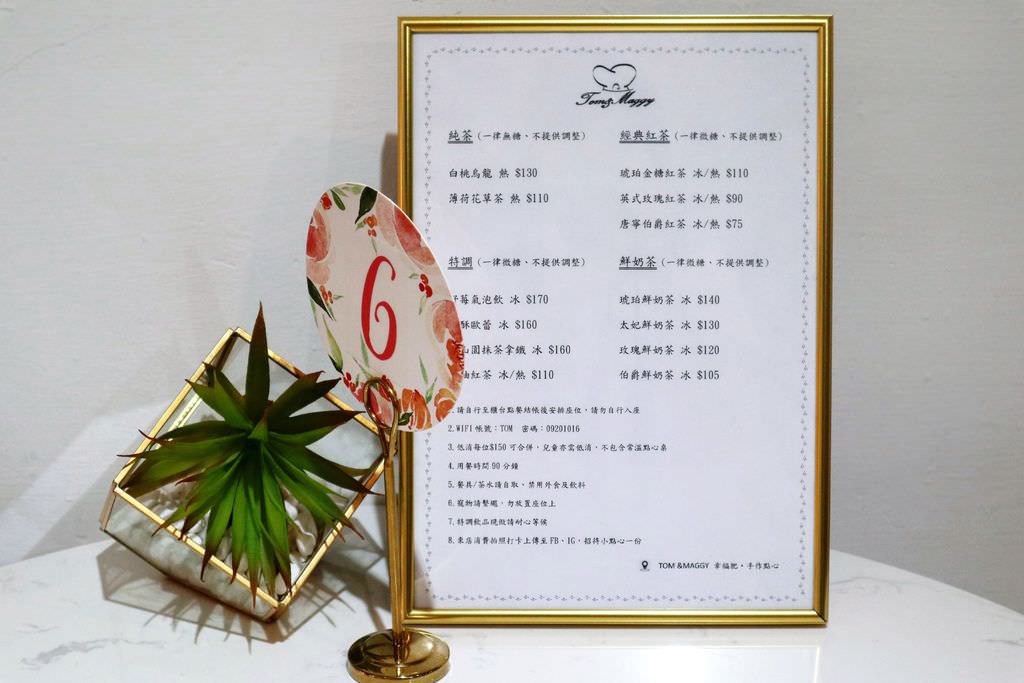 Tom&Maggy
純茶 (一律無糖、不提供調整)
白桃烏龍 熱 $130
薄荷花草茶 熱 $110
經典紅茶 (一律微糖、不提供調整)
琥珀金糖紅茶 冰/熱 $110
英式玫瑰紅茶 冰/熱 $90
唐寧伯爵紅茶 冰/熱 $75
特調 (一律微糖、不提供調整)
莓氣泡飲 冰 $170
酥歐蕾 冰 $160
山園抹茶拿鐵 冰 $160
柚紅茶 冰/熱 $110
鮮奶茶 (一律微糖、不提供調整)
琥珀鮮奶茶 冰 $140
太妃鮮奶茶 冰 $130
玫瑰鮮奶茶 冰 $120
伯爵鮮奶茶 冰 $105
6
1.請自行至櫃台點餐結帳後安排座位，請勿自行入座
2.WIFI 帳號：TOM 密碼：09201016
3.低消每位$150 可合併，兒童亦需低消，不包含常溫點心桌
4.用餐時間 90 分鐘
5.餐具/茶水請自取、禁用外食及飲料
6.寵物請繫繩，勿放置座位上
7.特調飲品現做請耐心等候
8.來店消費拍照打卡上傳至 FB、IG，招待小點心一份
TOM &MAGGY 幸福肥・手作點心